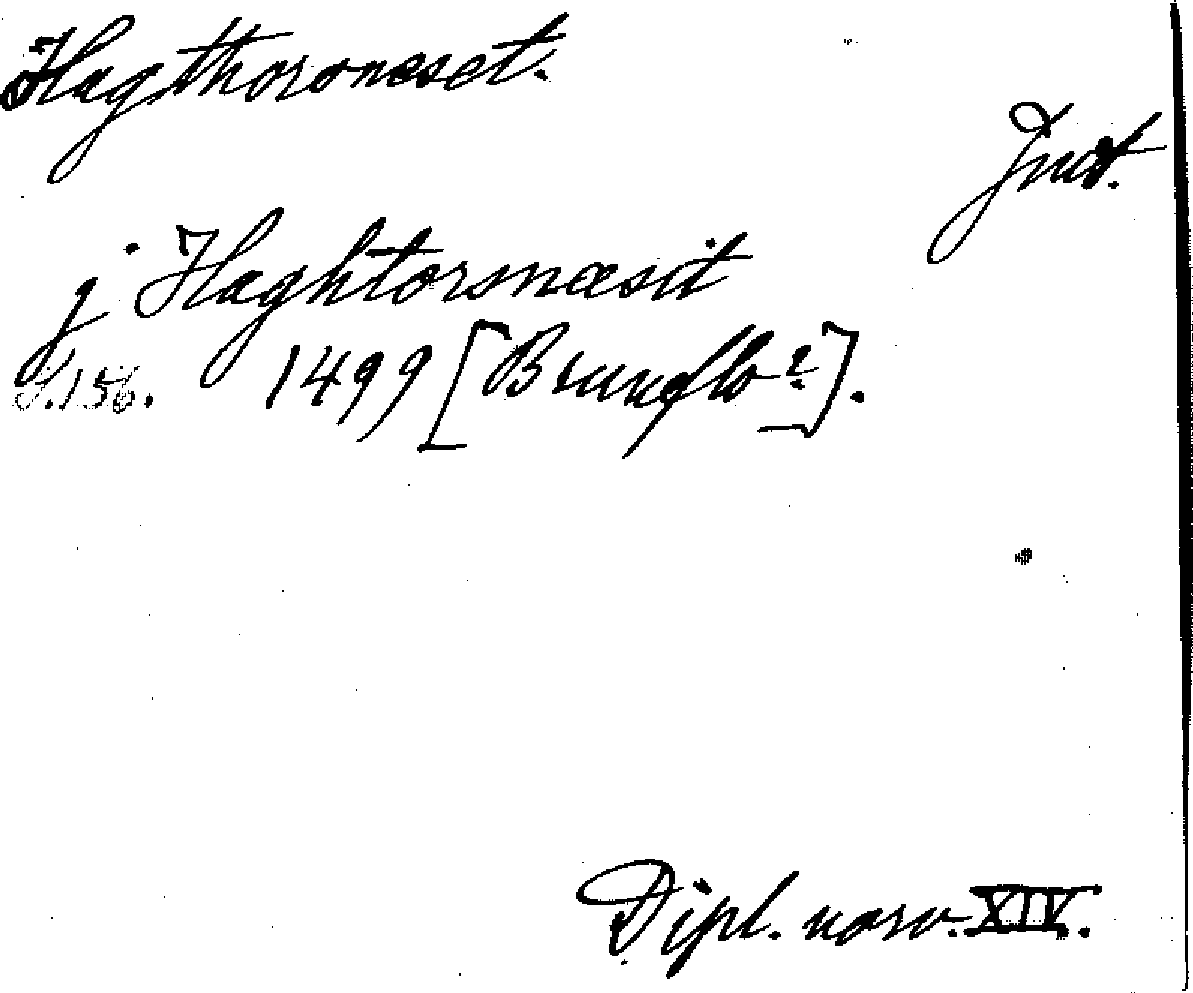 Hagthorsnæset.
Jmt.
j Haghtorsnæsit
S.156. 1499 [Brunflo?].
Dipl. norv. XIV.